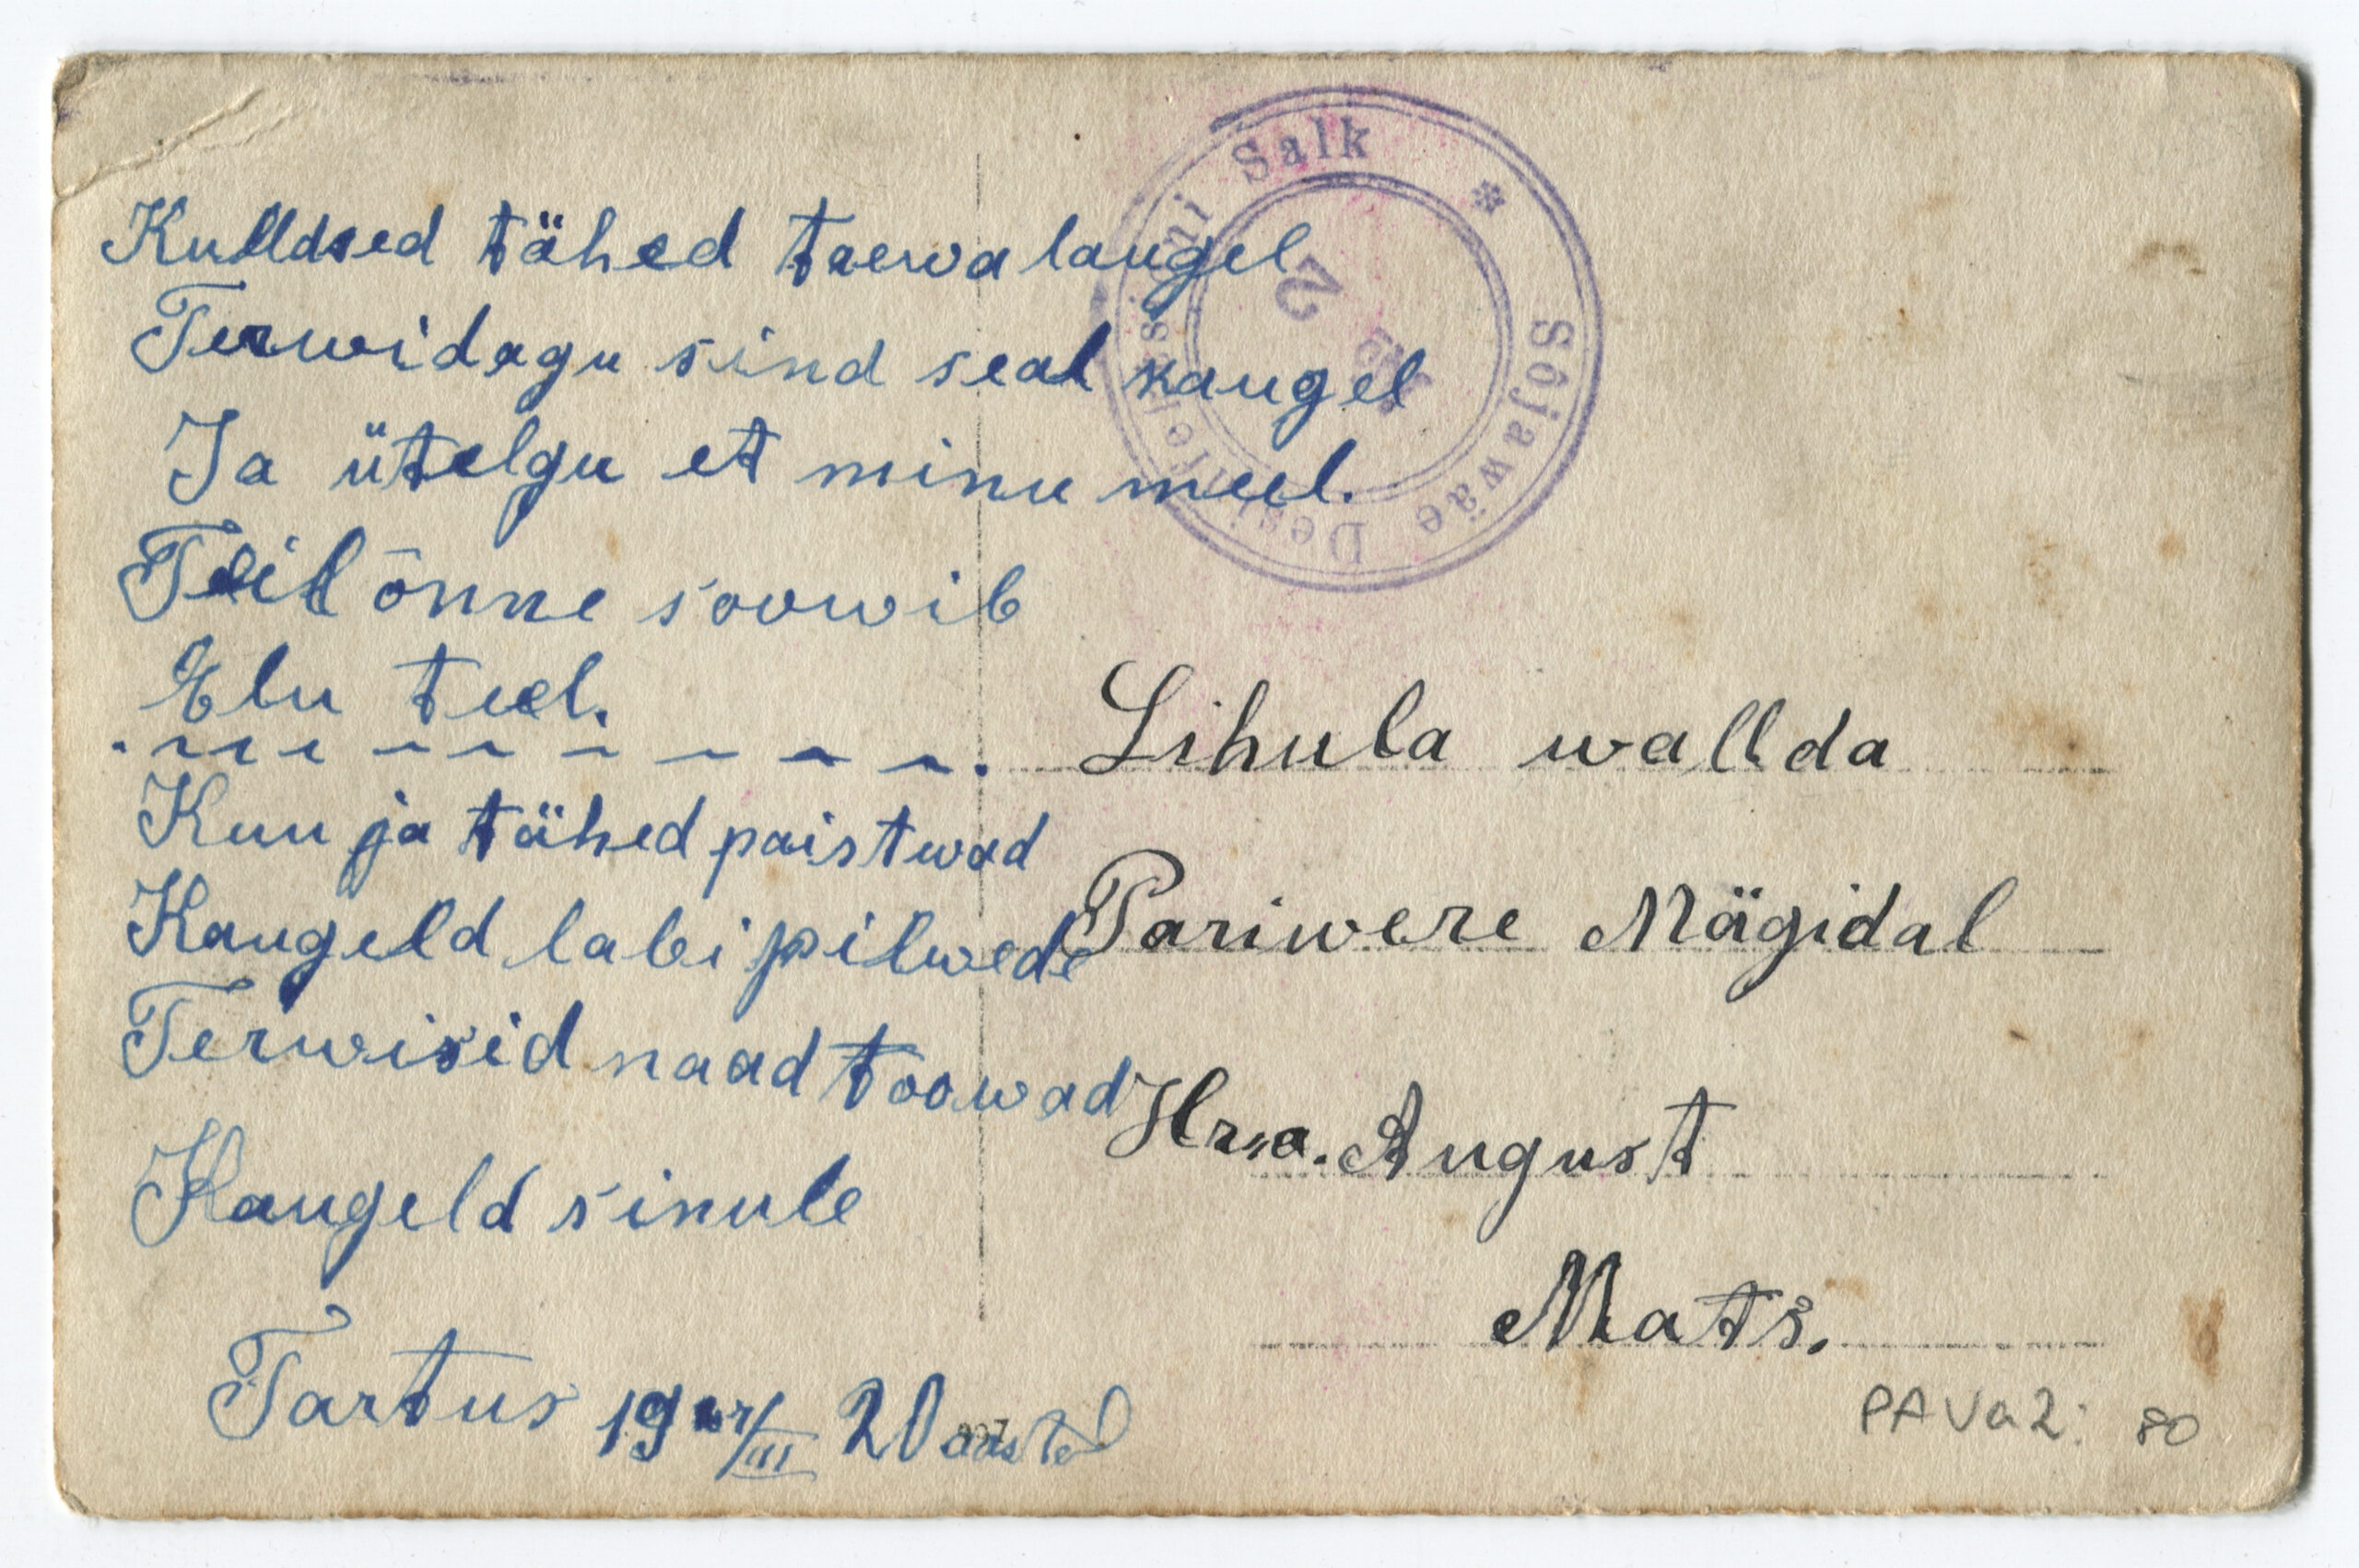 Kulldsed tähed taewa laugel
Terwidagu sind seal kaugel
Ja ütelgu et minu meel.
Teil õnne soowib
Elu teel.
Kuu ja tähed paistwad
Kaugeld labi pilwede
Terwisid naad toowad
Kaugeld sinule
Tartus 19 24/III 20 aastal
Sõjawäe Desinfektsiooni Salk
2
Lihula wallda
Pariwere Mägidal
Hrra. August
Mats.
PAVa2: 80